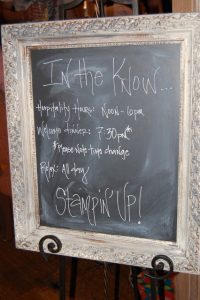 In the Know...
Hospitality Hours: Noon - 10pm
Welcome Dinner: 7:30pm*
*Please note time change
Relax: All day
Stampin' Up!